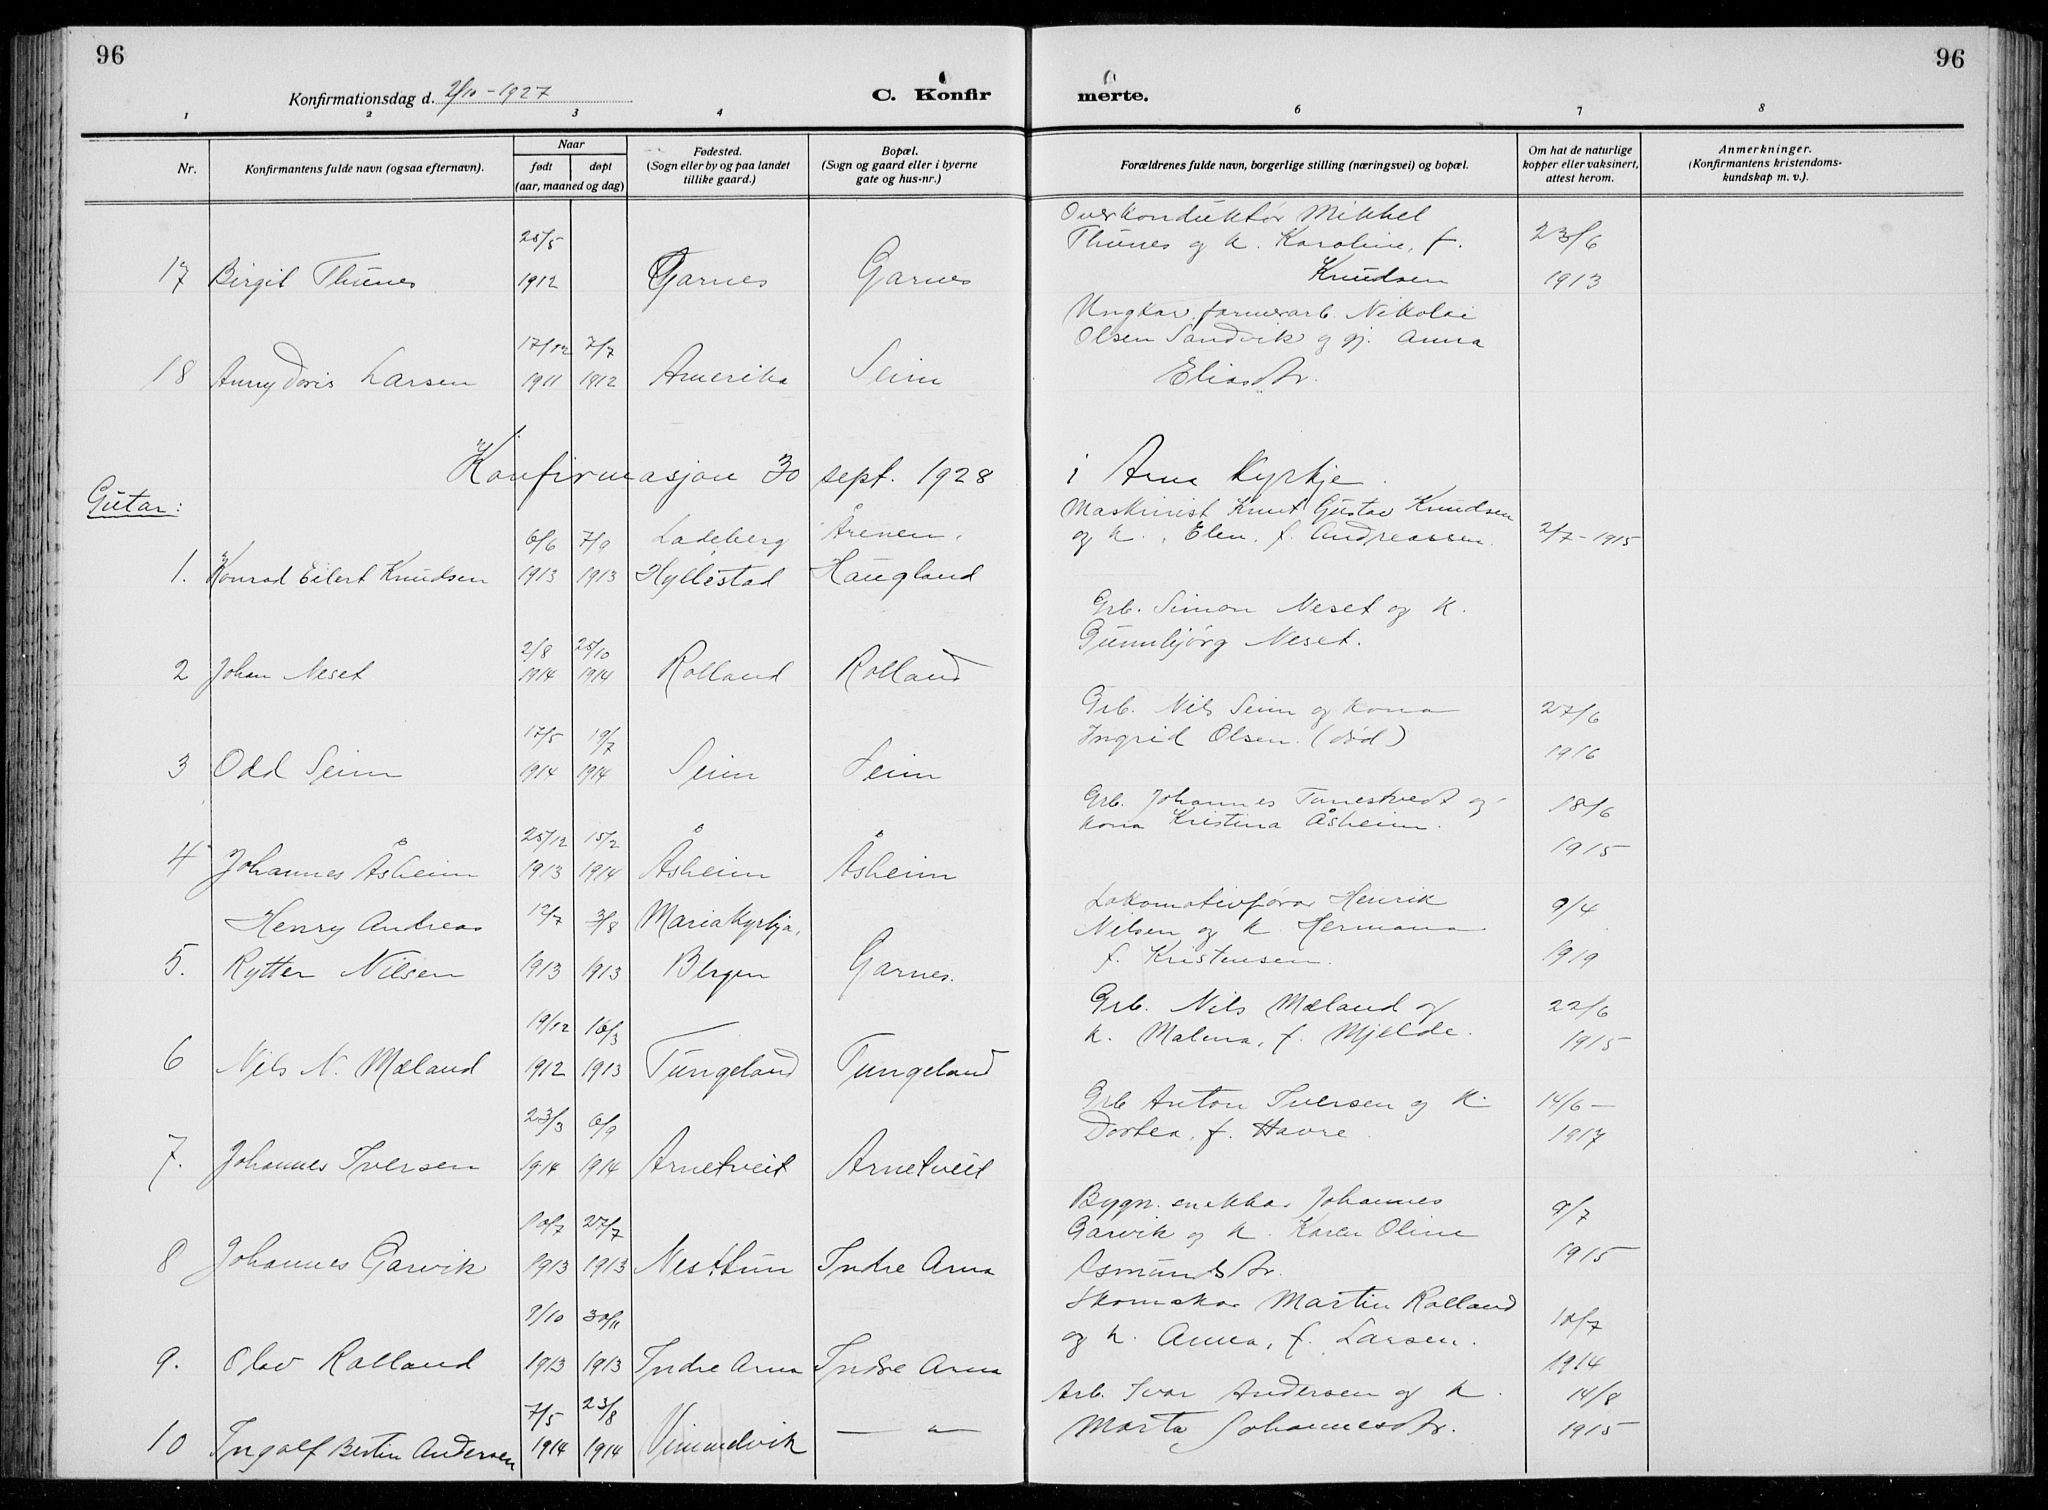 96
96
Konfirmationsdag d. 2/10 - 1927
C. Konfir
merte.
1 2 3 4 6 7 8
Nr.
Konfirmantens fulde navn (ogsaa efternavn).
Naar
født døpt
(aar, maaned og dag)
Fødested.
(Sogn eller by og paa landet
tillike gaard.)
Bopæl.
(Sogn og gaard eller i byerne
gate og hus-nr.)
Forældrenes fulde navn, borgerlige stilling (næringsvei) og bopæl.
Om hat de naturlige
kopper eller vaksinert,
attest herom.
Anmerkninger.
(Konfirmantens kristendoms-
kundskap m. v.).
25/5
Overkonduktør Mikkel
Thunes og k. Karoline, f. 23/6
17 Birgit Thunes 1912 Garnes Garnes Knudsen 1913
Ungkar, farverarb. Nikolai
17/12 7/7 Olsen Sandvik og gj. Anna
18 Anny Doris Larsen 1911 1912 Amerika Seim Eliasdtr.
Konfirmasjon 30 sept. 1928 i Arna Kyrkje.
Gutar:
Maskinist Knut Gustav Knudsen
6/6 7/9 Ladeberg Årenen, og k. Elen, f. Andreassen. 2/7 - 1915
1. Konrad Eilert Knudsen 1913 1913 Hyllestad Haugland
Grb. Simon Neset og k.
2/8 25/10 Gunnbjørg Neset.
2 Johan Neset 1914 1914 Rolland Rolland
Grb. Nils Seim og kona 27/6
17/5 19/7 Ingrid Olsen. (død) 1916
3 Odd Seim 1914 1914 Seim Seim
Grb. Johannes Tunestvedt og 18/6
25/12 15/2 kona Kristina Åsheim. 1915
4 Johannes Åsheim 1913 1914 Åsheim Åsheim
Lokomotivførar Henrik
Henry Andreas 12/7 3/8 Mariakyrkja, Nilsen og k. Hermana 9/4
5. Rytter Nilsen 1913 1913 Bergen Garnes. f. Kristensen. 1919
Grb. Nils Mæland og 22/6
19/12 16/3 k. Malena, f. Mjelde. 1915
6 Nils N. Mæland 1912 1913 Tungeland Tungeland
Grb Anton Iversen og k. 14/6 -
23/3 6/9 Dortea, f. Havre. 1917
7. Johannes Iversen 1914 1914 Arnetveit Arnetveit
Bygn. snekkar Johannes 9/7
10/7 27/7 Garvik og k. Karen Oline 1915
8 Johannes Garvik 1913 1913 Nesttun Indre Arna Asmundsdtr.
9/10 30/11 Skomakar Martin Rolland 10/7
og k. Anna, f. Larsen. 1914
9. Olav Rolland 1913 1913 Indre Arna Indre Arna
7/5 23/8 Arb. Ivar Andersen og k. 14/8
10 Ingolf Bertin Andersen 1914 1914 — " — Marta Johannesdtr. 1915